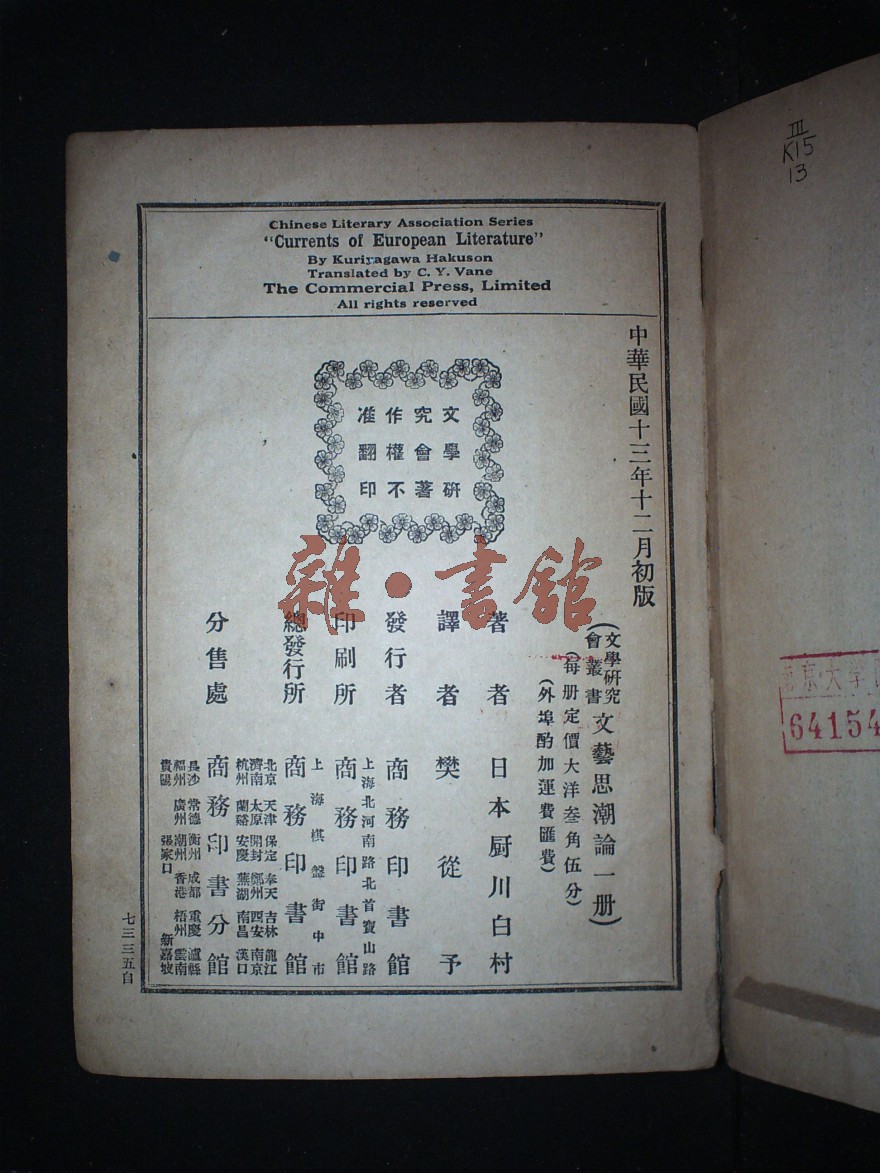 Chinese Literary Association Series
"Currents of European Literature"
By Kuriyagawa Hakuson
Translated by C. Y. Vane
The Commercial Press, Limited
All rights reserved
中華民國十三年十二月初版
文學研
究會著
作權不
准翻印
(文學研究會叢書)文藝思潮論一册)
(每册定價大洋叁角伍分)
(外埠酌加運費匯費)
著者 日本厨川白村
譯者 樊從予
發行者 商務印書館
上海北河南路北首寶山路
印刷所 商務印書館
上海棋盤街中市
總發行所 商務印書館
北京 天津 保定 奉天 吉林 龍江
濟南 太原 開封 鄭州 西安 南京
杭州 蘭谿 安慶 蕪湖 南昌 漢口
分售處 商務印書分館
長沙 常德 衡州 成都 重慶 瀘縣
福州 廣州 潮州 香港 梧州 雲南
貴陽 張家口 新嘉坡
七三三五自
雜·書館
III
K15
13
京大学
64154